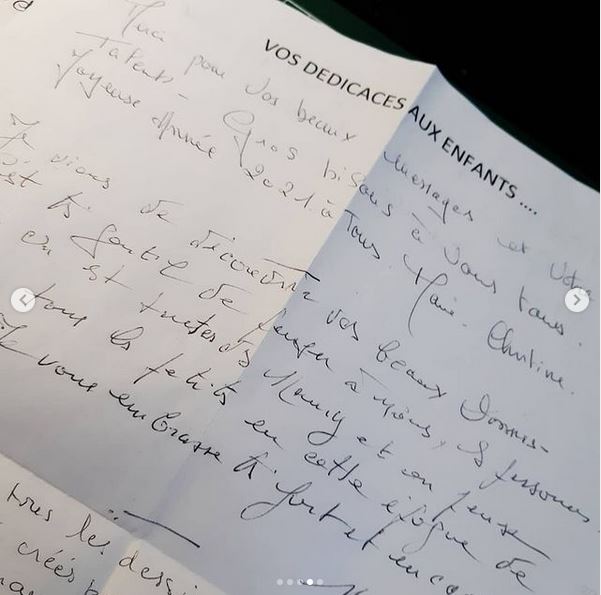 VOS DEDICACES AUX ENFANTS ....
Merci pour vos beaux messages et votre
Talents - Gros bisous à vous tous.
Joyeuse Année 2021 à Tous Marie-Christine.
Je viens de découvrir vos beaux Dessins-
est ts gentil de penser à nous, les personnes
on est et on pense
tous les petits en cette époque de
Je vous embrasse ts fort et enco
tous les dessi
créés